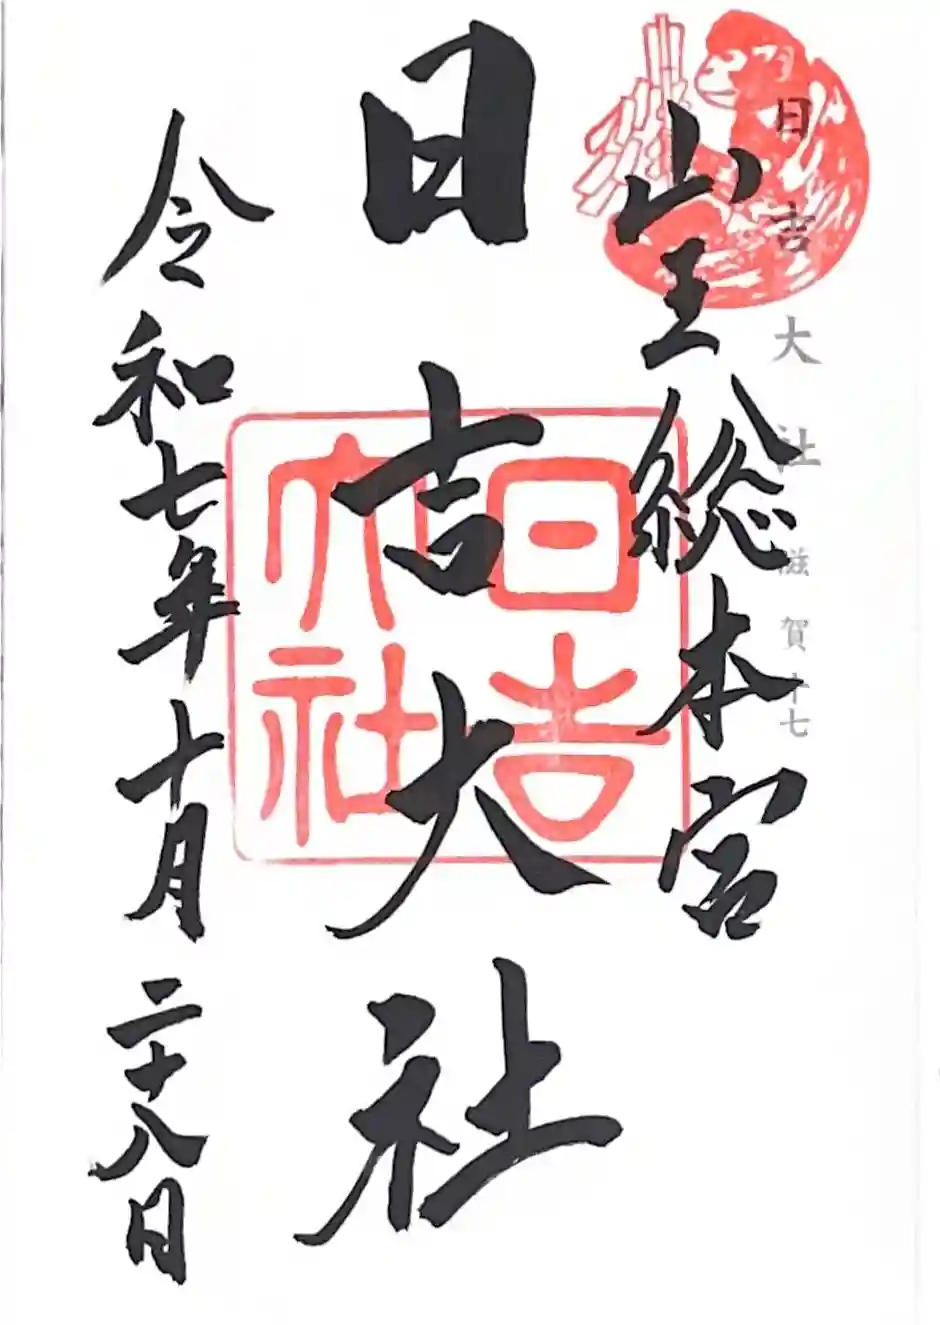 日吉大社 滋賀十七
山王総本宮
日吉大社
日吉大社
令和七年十月二十八日